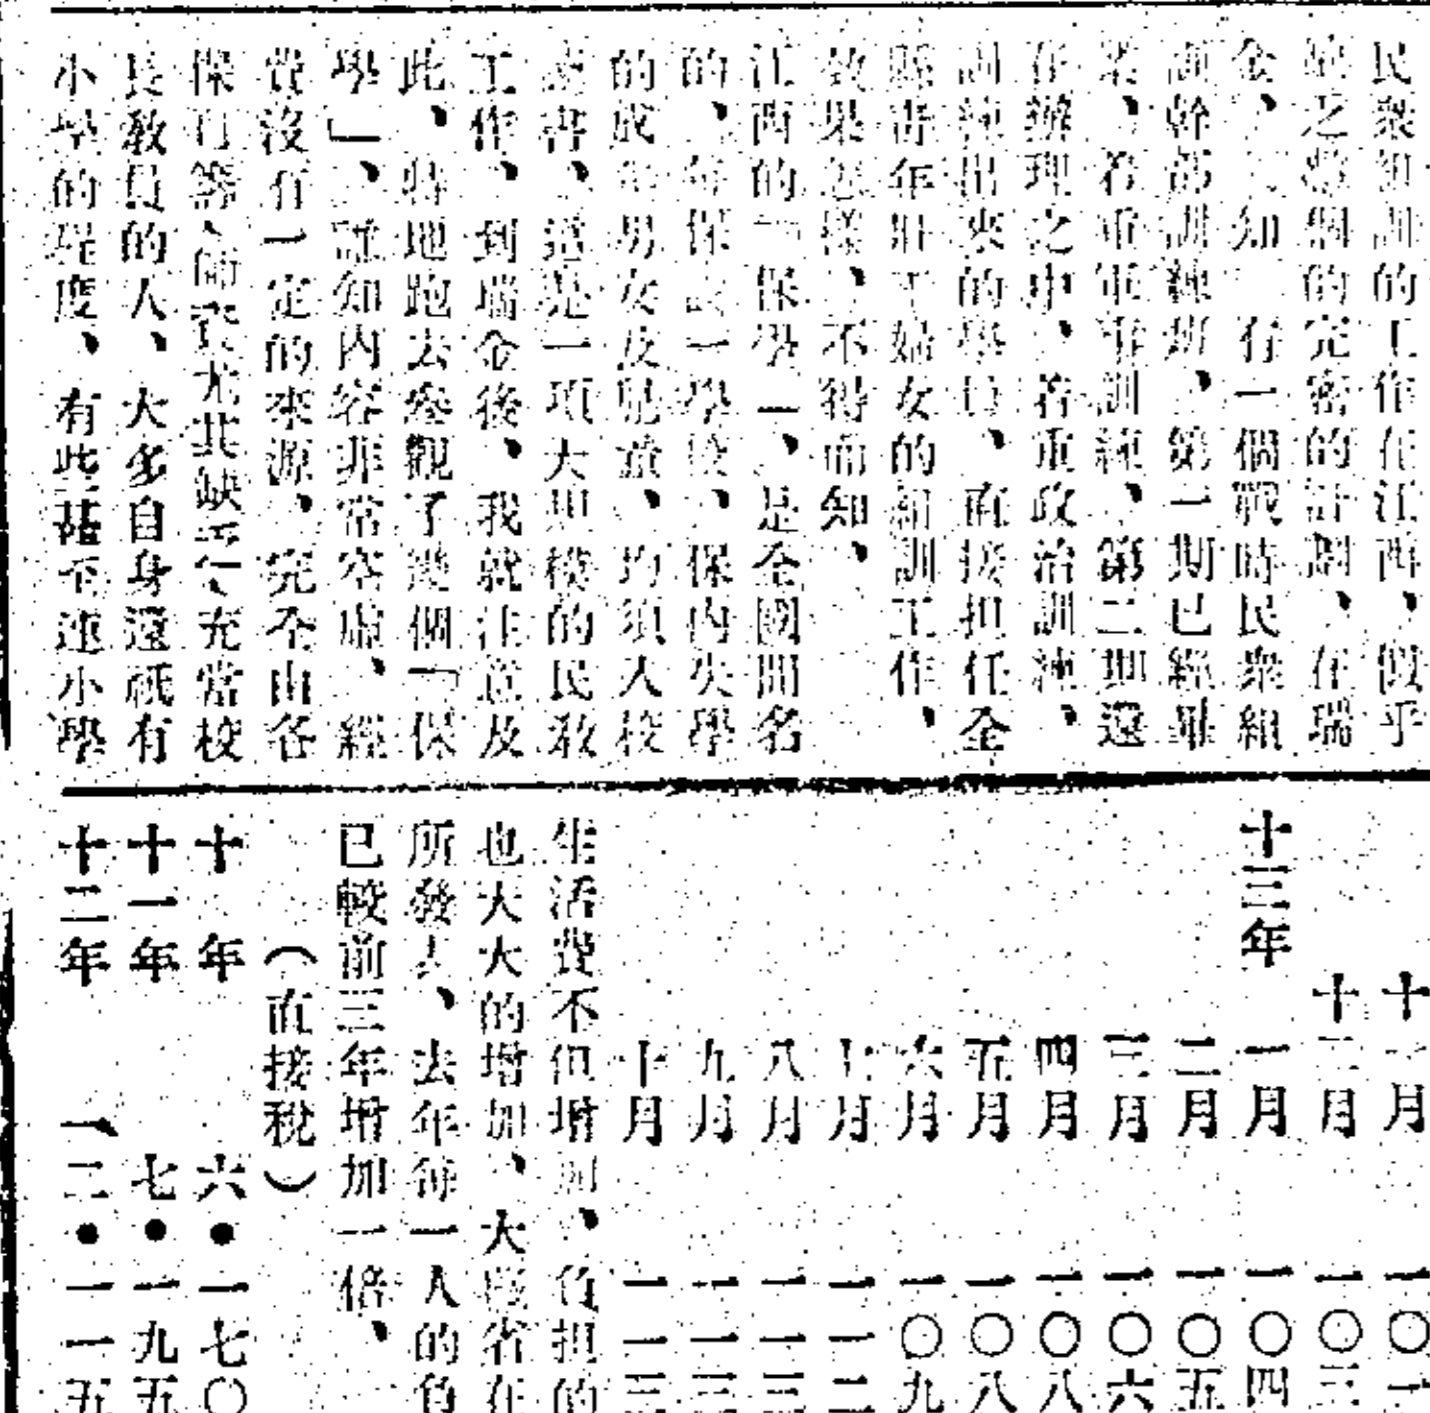 民衆組訓的工作在江西、似乎
之整個的完密的計劃、在瑞
金、知有一個戰時民衆組
訓幹部訓練班、第一期已經畢
業、着重軍事訓練、第二期還
在辦理之中、着重政治訓練、
訓練出來的學員、直接担任全
縣青年壯丁婦女的組訓工作、
效果怎樣、不得而知、
江西的「保學」、是全國聞名
的、每保設一學校、保內失學
的成年男女及兒童、均須入校
讀書、這是一項大規模的民敎
工作、到瑞金後、我就注意及
此、特地跑去參觀了幾個「保
學」、誰知內容非常空虛、經
費沒有一定的來源、完全由各
保自籌、師資尤其缺乏、充當校
長敎員的人、大多自身還祇有
小學的程度、有些甚至連小學
十一月 一〇
十二月 一〇三
十三年 一月 一〇四
二月 一〇五
三月 一〇六
四月 一〇八
五月 一〇八
六月 一〇九
七月 一一二
八月 一一三
九月 一一三
十月 一一三
生活費不但增加、負担的
也大大的增加、大省在
所發表、去年每一人的負
已較前三年增加一倍、
（直接稅）
十年 六●一七〇
十一年 七●一九五
十二年 一二●一一五